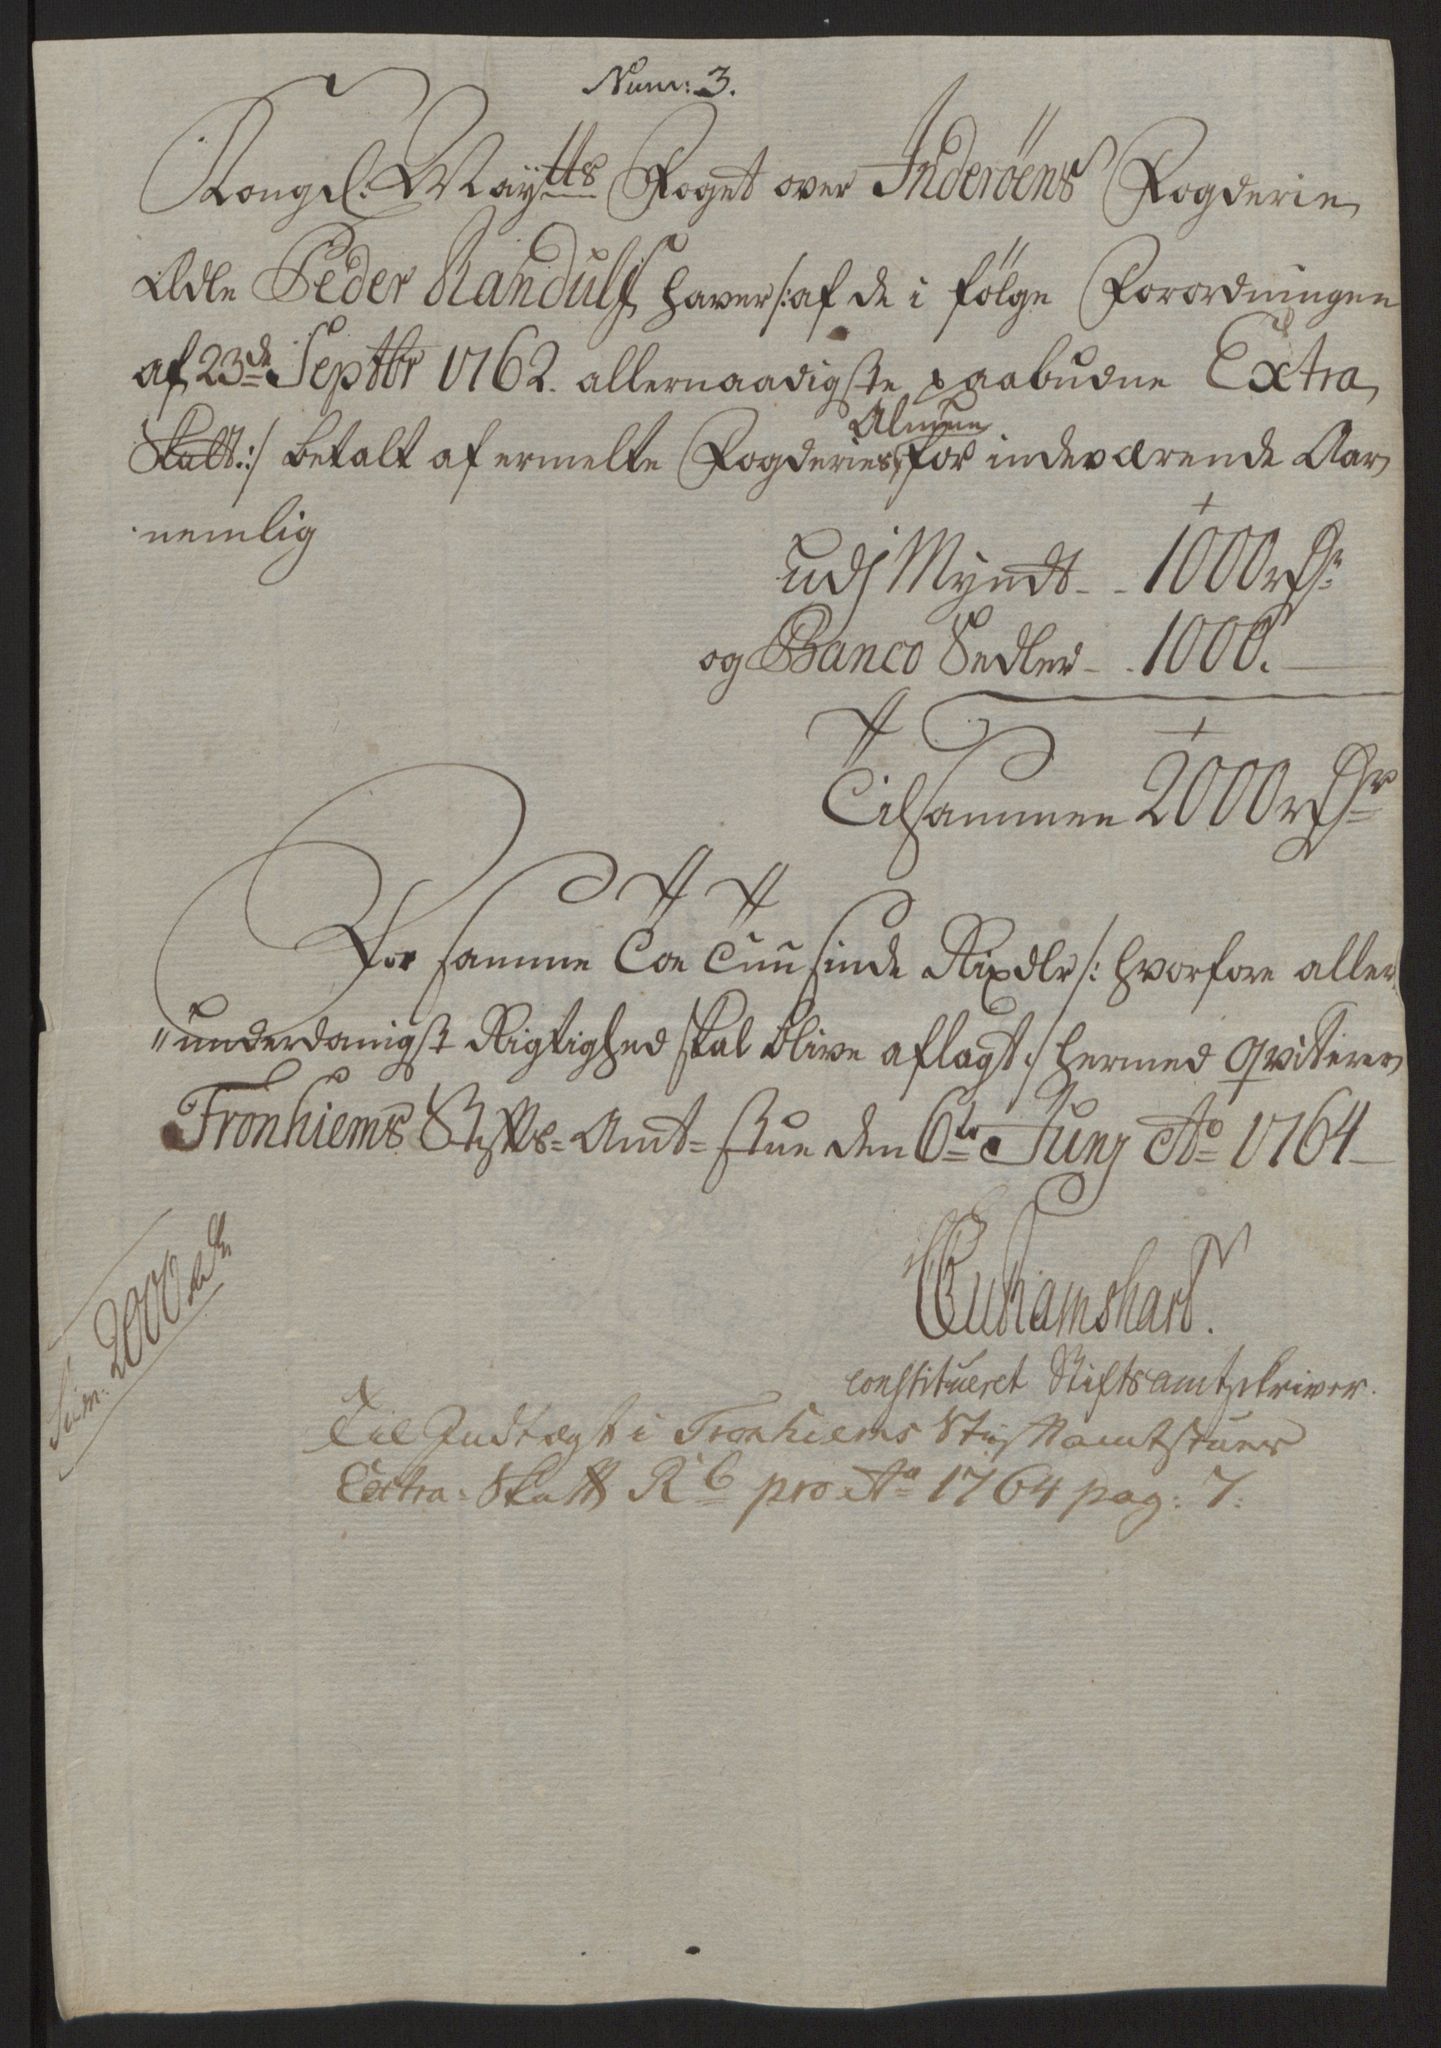 Num: 3.
Kongl: Maytts Foget over Inderöens Fogderie
Ædle Peder Randulf haver /: af de i følge Forordningen
af 23de Septbr 1762. allernaadigste paabudne Extra
Skatt :/ betalt af ermelte Fogderies Almue for indeværende Aar
nemlig
udj Myndt - - 1000 rdr
og Banco Sedler - - 1000.
Tilsammen 2000 rdr
For samme Toe Tuusinde Rixdlr /: hvorfore aller
"underdanigst Rigtighed skal blive aflagt :/ hermed qviterer
Tronhiems Stifts-Amt-stue den 6te Junj Ao 1764
Ramshart.
constitueret Stiftsamtskriver.
Sum: 2000 rdr
Til Indtægt i Tronhiems Stiftamtstues
Extra: Skatt R 6 pro Ao 1764 pag: 7: